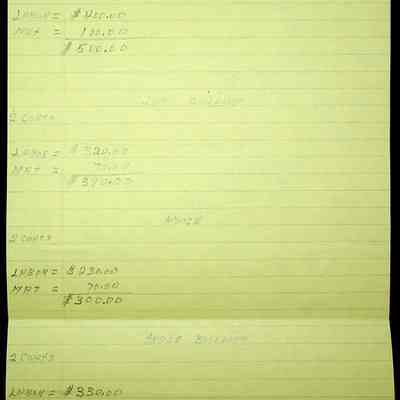 LABOR = $400.00
MAT = 100.00
$500.00
2 COATS
LABOR = $320.00
MAT = 70.00
$390.00
2 COATS
LABOR = $230.00
MAT = 70.00
$300.00
2 COATS
LABOR = $330.00